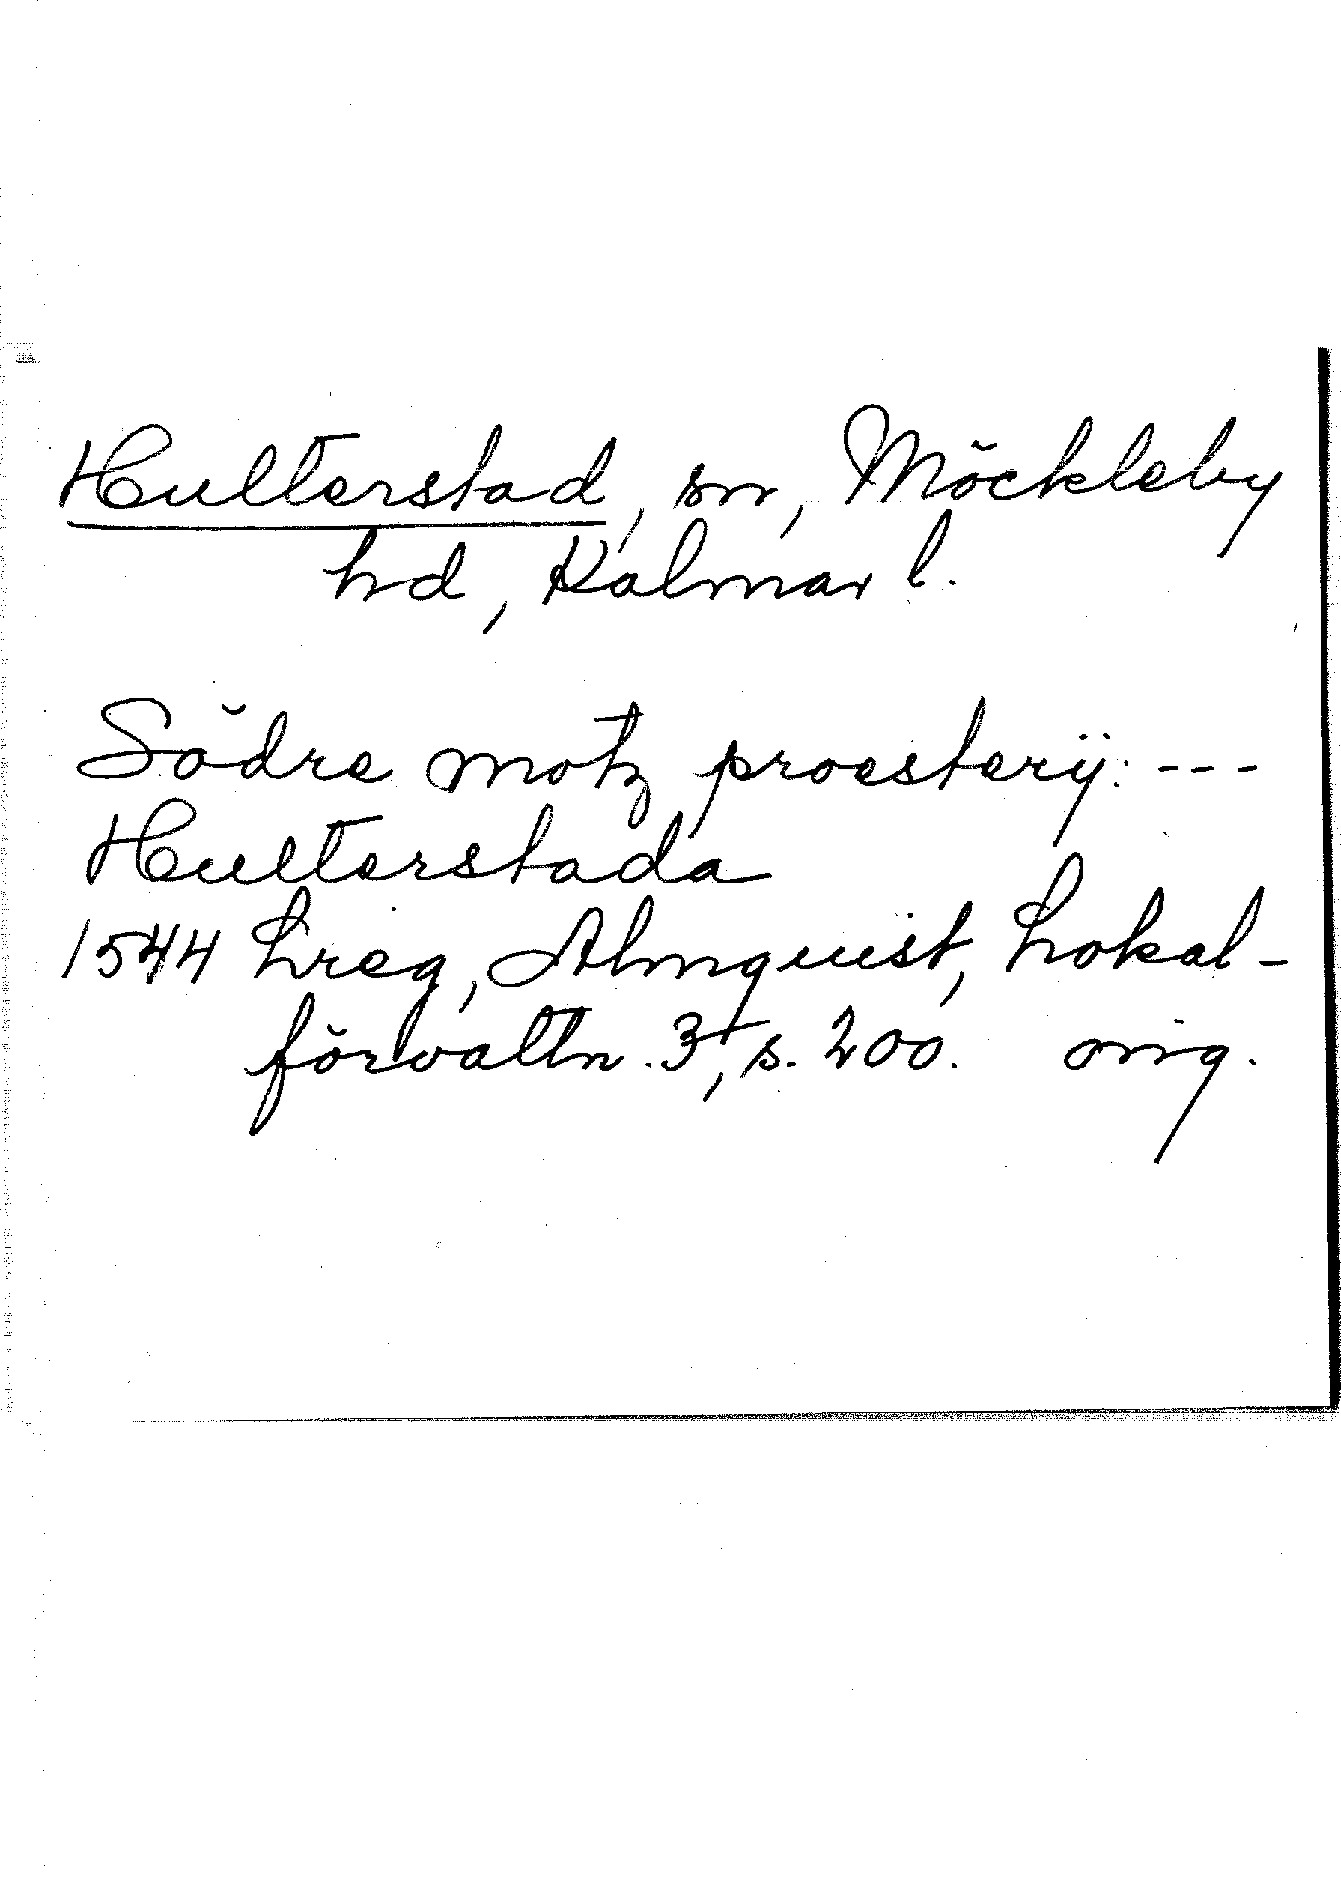 Hulterstad, sn, Möckleby
hd, Kalmar l.
Södre motz proestery: ---
Hulterstada
1544 Lreg, Almquist, Lokal-
förvaltn. 3, s. 200. orig.